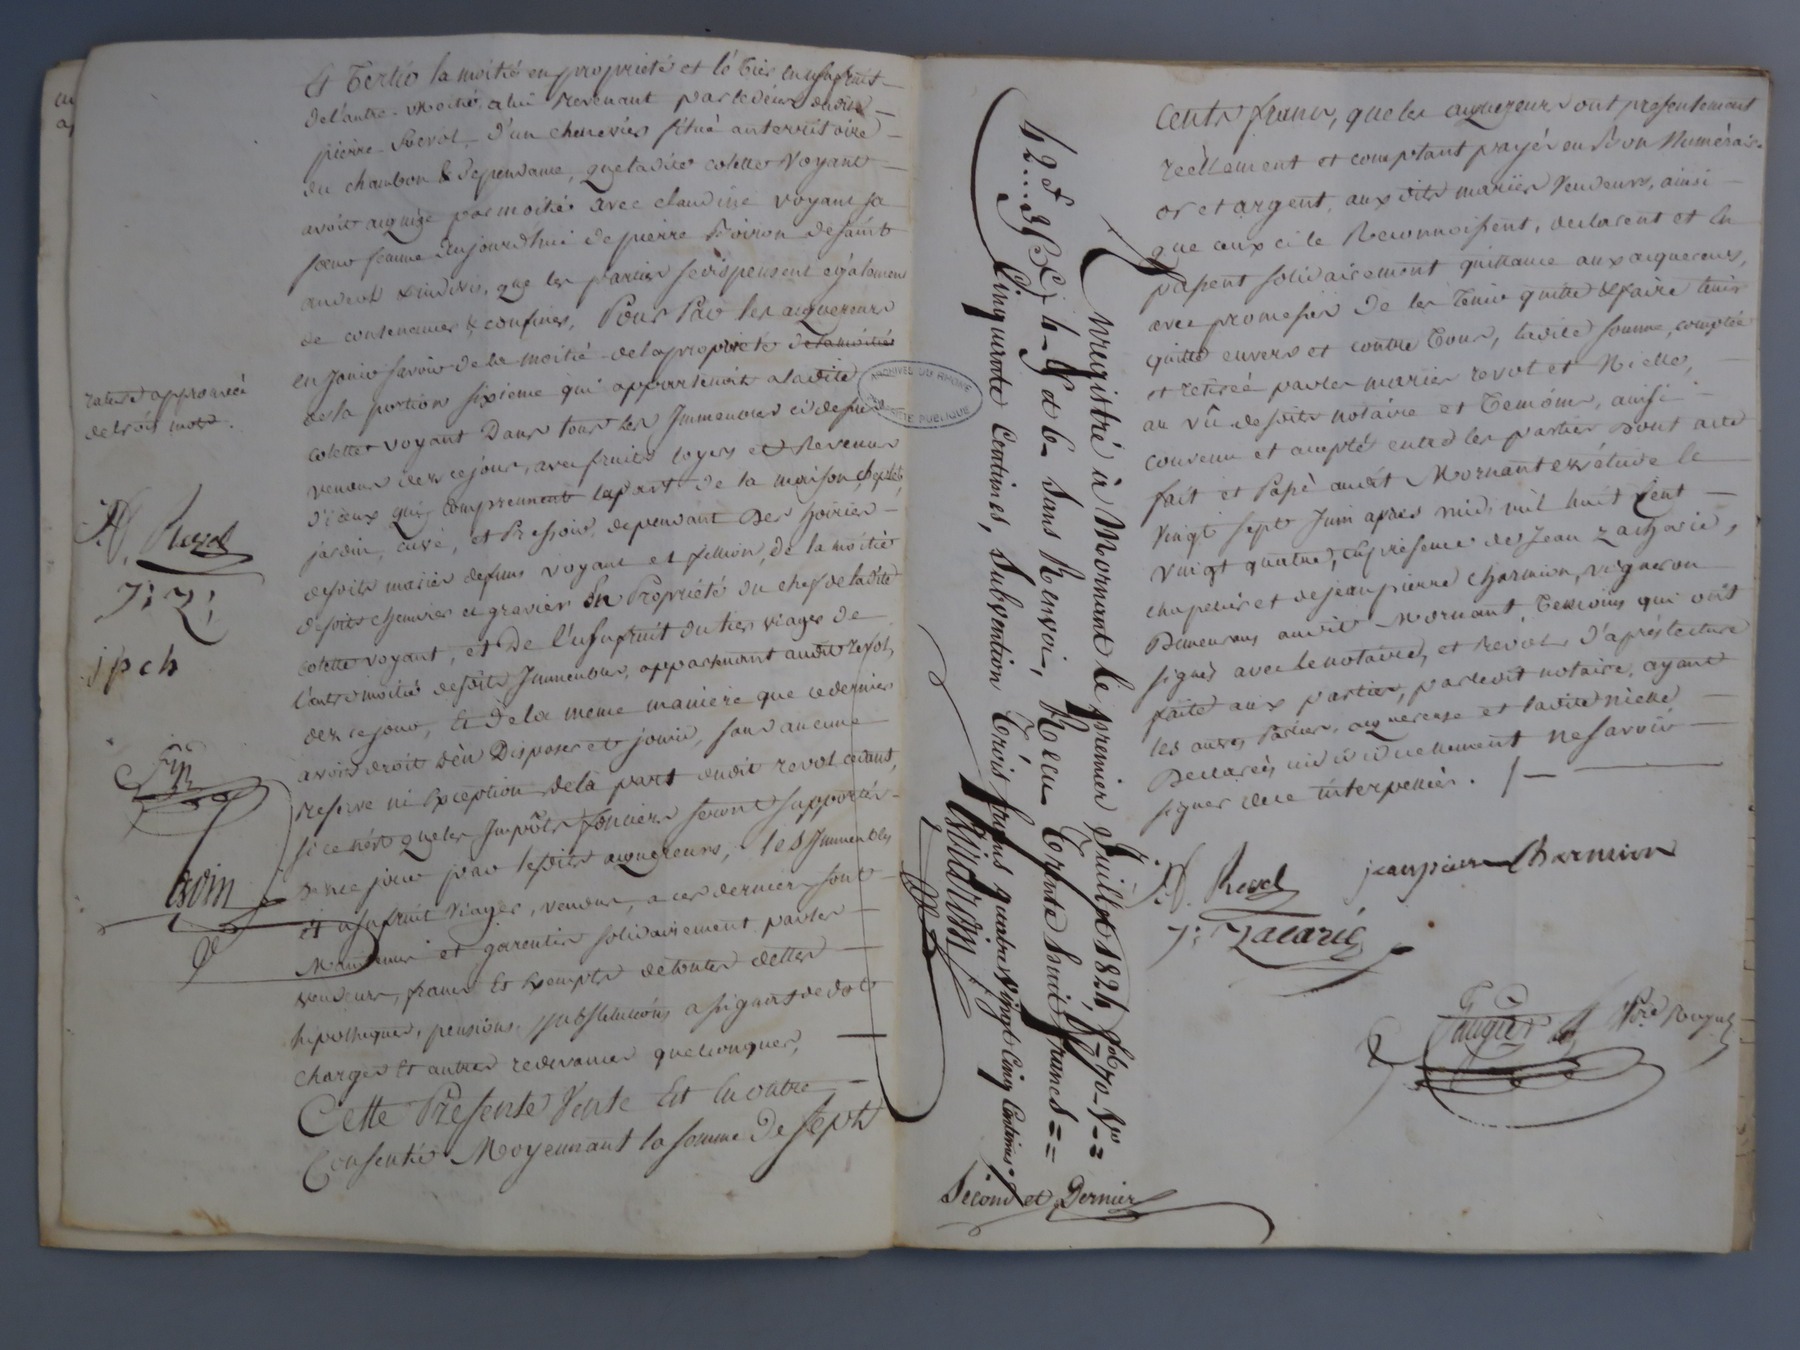 Et Tertio la moitié en propriété et le tiers en usufruit
de l'autre moitié a lui revenant par le décès dudit
pierre Revol, d'un chenevier situé au territoire
du chambon & dependance, que ladite colette Voyant
avoit acquise par moitié avec claudine voyant sa
sœur femme aujourd'hui de pierre Poiron desdits
audvol & indivis, que les parties se dispensent egalement
de contenances & confines, Pour Par les acquereurs
en Jouir savoir de la moitié de la propriété de la moitié
de la portion sixieme qui appartenoit a ladite
colette voyant Dans tous les Immeubles ci dessus
vendus dez ce jour, avec fruits loyers et Revenus
d'iceux qui comprennent la part de la maison,
jardin, cuve, et Pressoir, dependant Des hoiries
desdits mariés defunts voyant et fillion, de la moitié
desdits chenevier et gravier En Propriété du chef de ladite
colette voyant, et De l'usufruit du tiers viager de
l'autre moitié desdits Immeubles, appartenant audit revol,
dez ce jour, Et De la meme maniere que ce dernier
avoit droit d'en Disposer et jouir, sans aucune
reserve ni Exception de la part dudit revol cedant,
si ce n'est que les Impôts fonciers seront supportés
de ce jour par lesdits acquereurs, les Immeubles
et usufruit Viager, vendus, a ces derniers sont
Maintenus et garentis solidairement par les
vendeurs, francs Et Exempts de toutes dettes
hipotheques, pensions, substitutions assignats de dot
charges Et autres redevances quelconques,
Cette Présente Vente Est En outre
Consentie Moyennant la somme De Sept
rature approuvée
de trois mots.
Revol
J: Z:
jpch
ARCHIVES DU RHONE
PROPRIETE PUBLIQUE
42 f
Enregistré à Mornant le premier Juillet 1824, f° 70 V°
C. 4-5 et 6 Sans Renvoi, Recu Trente huit francs
Cinquante Centimes, Subvention Trois francs quatre vingt cinq Centimes.
Second et Dernier
Cents francs, que les acquereurs ont presentement
réellement et comptant payés en Bon Numéraire
or et argent, aux dits mariés Vendeurs, ainsi
que ceux ci le Reconnoissent, declarent et En
passent solidairement quittance aux acquereurs,
avec promesse de les Tenir quitte & faire tenir
quitte envers et contre Tous, ladite somme, comptée
et retirée par les mariés revol et Nielle,
au vû desdits notaire et Temoins, ainsi
convenu et accepté entre les parties Dont acte
fait et Passé audit Mornant en l'étude le
Vingt sept Juin apres midi, mil huit Cent
vingt quatre, En présence de Jean Zacharie,
chapelier et de jean pierre charmion, vigneron
Demeurans audit Mornant, Temoins qui ont
signés avec le notaire, et Revol D'après lecture
faite aux parties, par ledit notaire, ayant
les autres Parties, acquereuse et ladite Nielle
Declarées individuellement ne savoir
signer de ce interpellées.
Revol
jean pierre Charmion
J: Zacarié